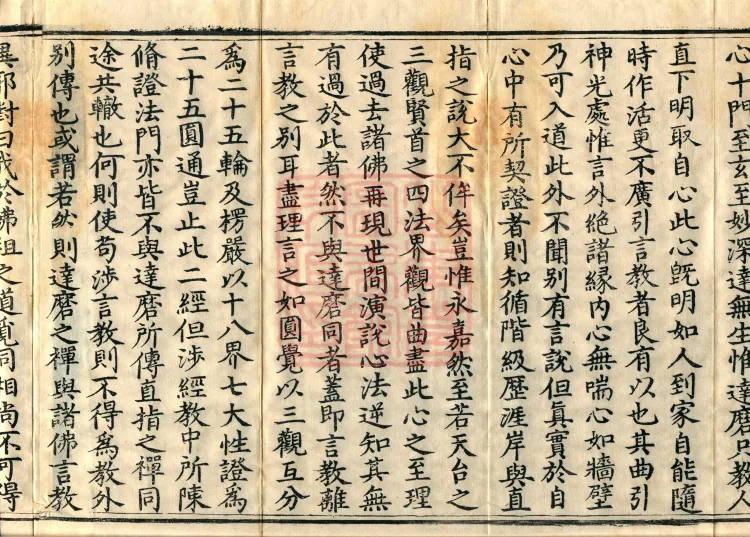 心十門至玄至妙深達無生惟達磨只教人
直下明取自心此心旣明如人到家自能隨
時作活更不廣引言教者良有以也其曲引
神光處惟言外絶諸緣内心無喘心如牆壁
乃可入道此外不聞別有言說但真實於自
心中有所契證者則知循階級歷涯岸與直
指之說大不侔矣豈惟永嘉然至若天台之
三觀賢首之四法界觀皆曲盡此心之至理
使過去諸佛再現世間演說心法逆知其無
有過於此者然不與達磨同者蓋即言教離
言教之別耳盡理言之如圓覺以三觀互分
爲二十五輪及楞嚴以十八界七大性證爲
二十五圓通豈止此二經但涉經教中所陳
脩證法門亦皆不與達磨所傳直指之禪同
途共轍也何則使苟涉言教則不得爲教外
別傳也或謂若然則達磨之禪與諸佛言教
異耶對曰我於佛祖之道覓同相尚不可得